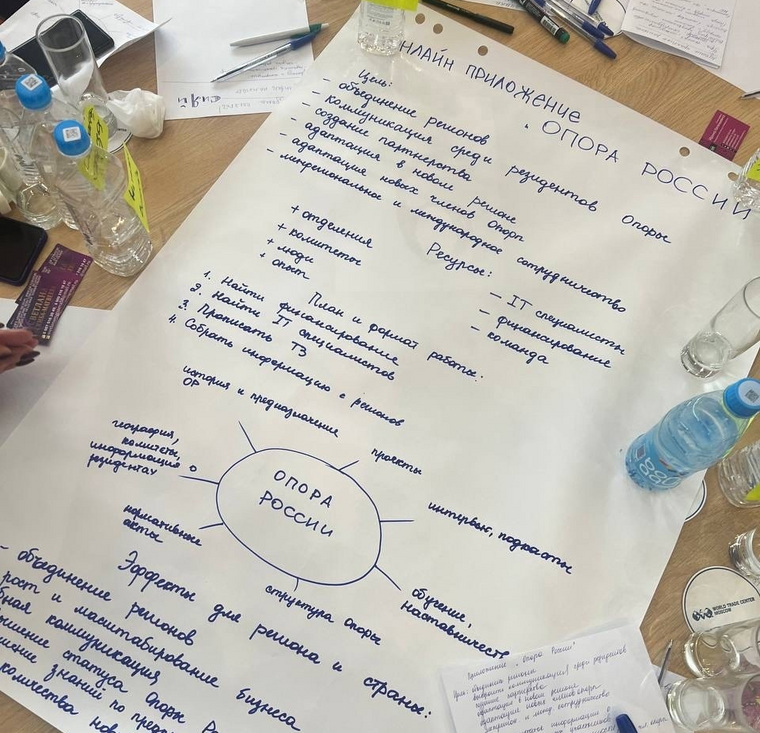 НЛАЙН ПРИЛОЖЕНИЕ
"ОПОРА РОССИИ
Цель:
- объединение регионов
- коммуникация среди резидентов Опоры
- создание партнерства
- адаптация в новом регионе
- адаптация новых членов Опоры
- межрегиональное и международное сотрудничество
+ отделения
+ комитеты
+ люди
+ опыт
Ресурсы:
- IT специалисты
- финансирование
- команда
План и формат работы:
1. Найти финансирование
2. Найти IT специалистов
3. Прописать ТЗ
4. Собрать информацию с регионов
история и предназначение
ОР
проекты
география,
комитеты,
информация о
резидентах
ОПОРА
РОССИИ
интервью, подкасты
нормативные
акты
структура Опоры
обучение,
наставничеств
Эффекты для региона и страны:
- объединение регионов
рост и масштабирование бизнеса
коммуникация
статуса Опоры
знаний по
количества
Приложение "Опора России"
WORLD TRADE CENTER
MOSCOW